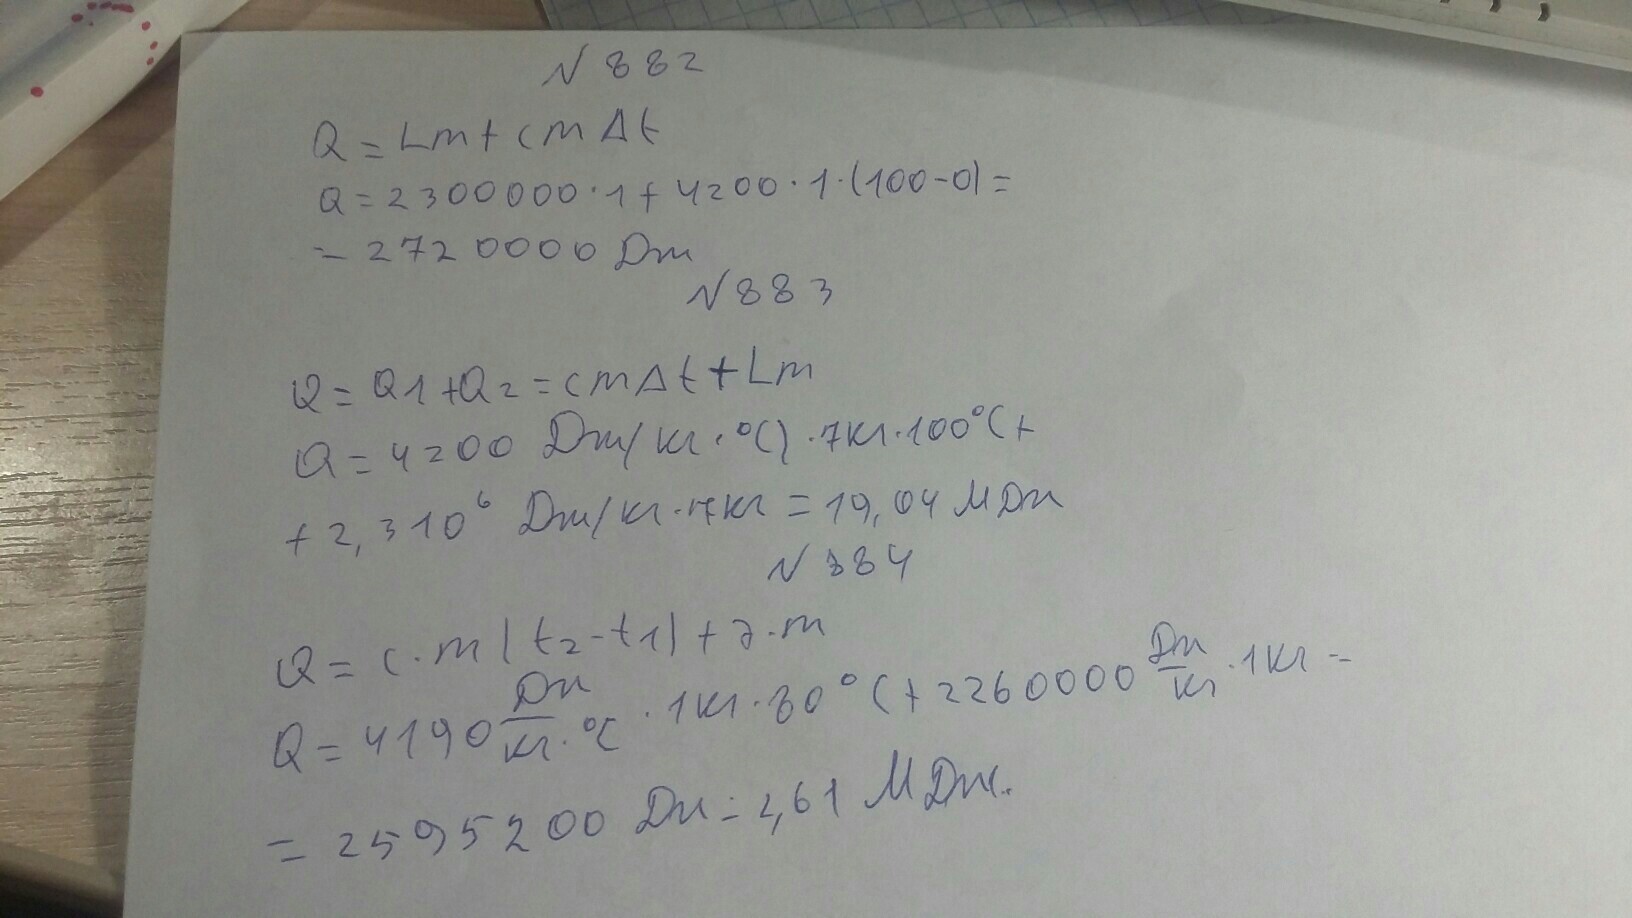 № 882
Q = Lm + cmΔt
Q = 2300000·1 + 4200·1·(100-0) =
= 2720000 Дж
№ 883
Q = Q1 + Q2 = cmΔt + Lm
Q = 4200 Дж/кг·°C)·7кг·100°C +
+ 2,3 10⁶ Дж/кг·7кг = 19,04 МДж
№ 884
Q = c·m(t2-t1) + λ·m
Q = 4190 Дж/кг·°C · 1кг·80°C + 2260000 Дж/кг · 1кг =
= 2595200 Дж = 2,61 МДж.